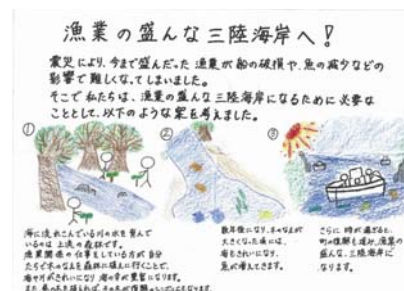 漁業の盛んな三陸海岸へ!
震災により、今まで盛んだった漁業が船の破損や、魚の減少などの
影響で難しくなってしまいました。
そこで私たちは、漁業の盛んな三陸海岸になるために必要な
こととして、以下のような案を考えました。
①
②
③
海に流れこんでいる川の水を育んで
いるのは上流の森林です。
漁業関係の仕事をしている方が自分
たちで木のなえを森林に植えに行くことで、
海や川がきれいになり海の幸が豊富になります。
数年後になり、木のなえが
大きくなった頃には、
海もきれいになり、
魚が増えてきます。
さらに時が過ぎると、
町の復興も進み、漁業の
盛んな三陸海岸に
なります。